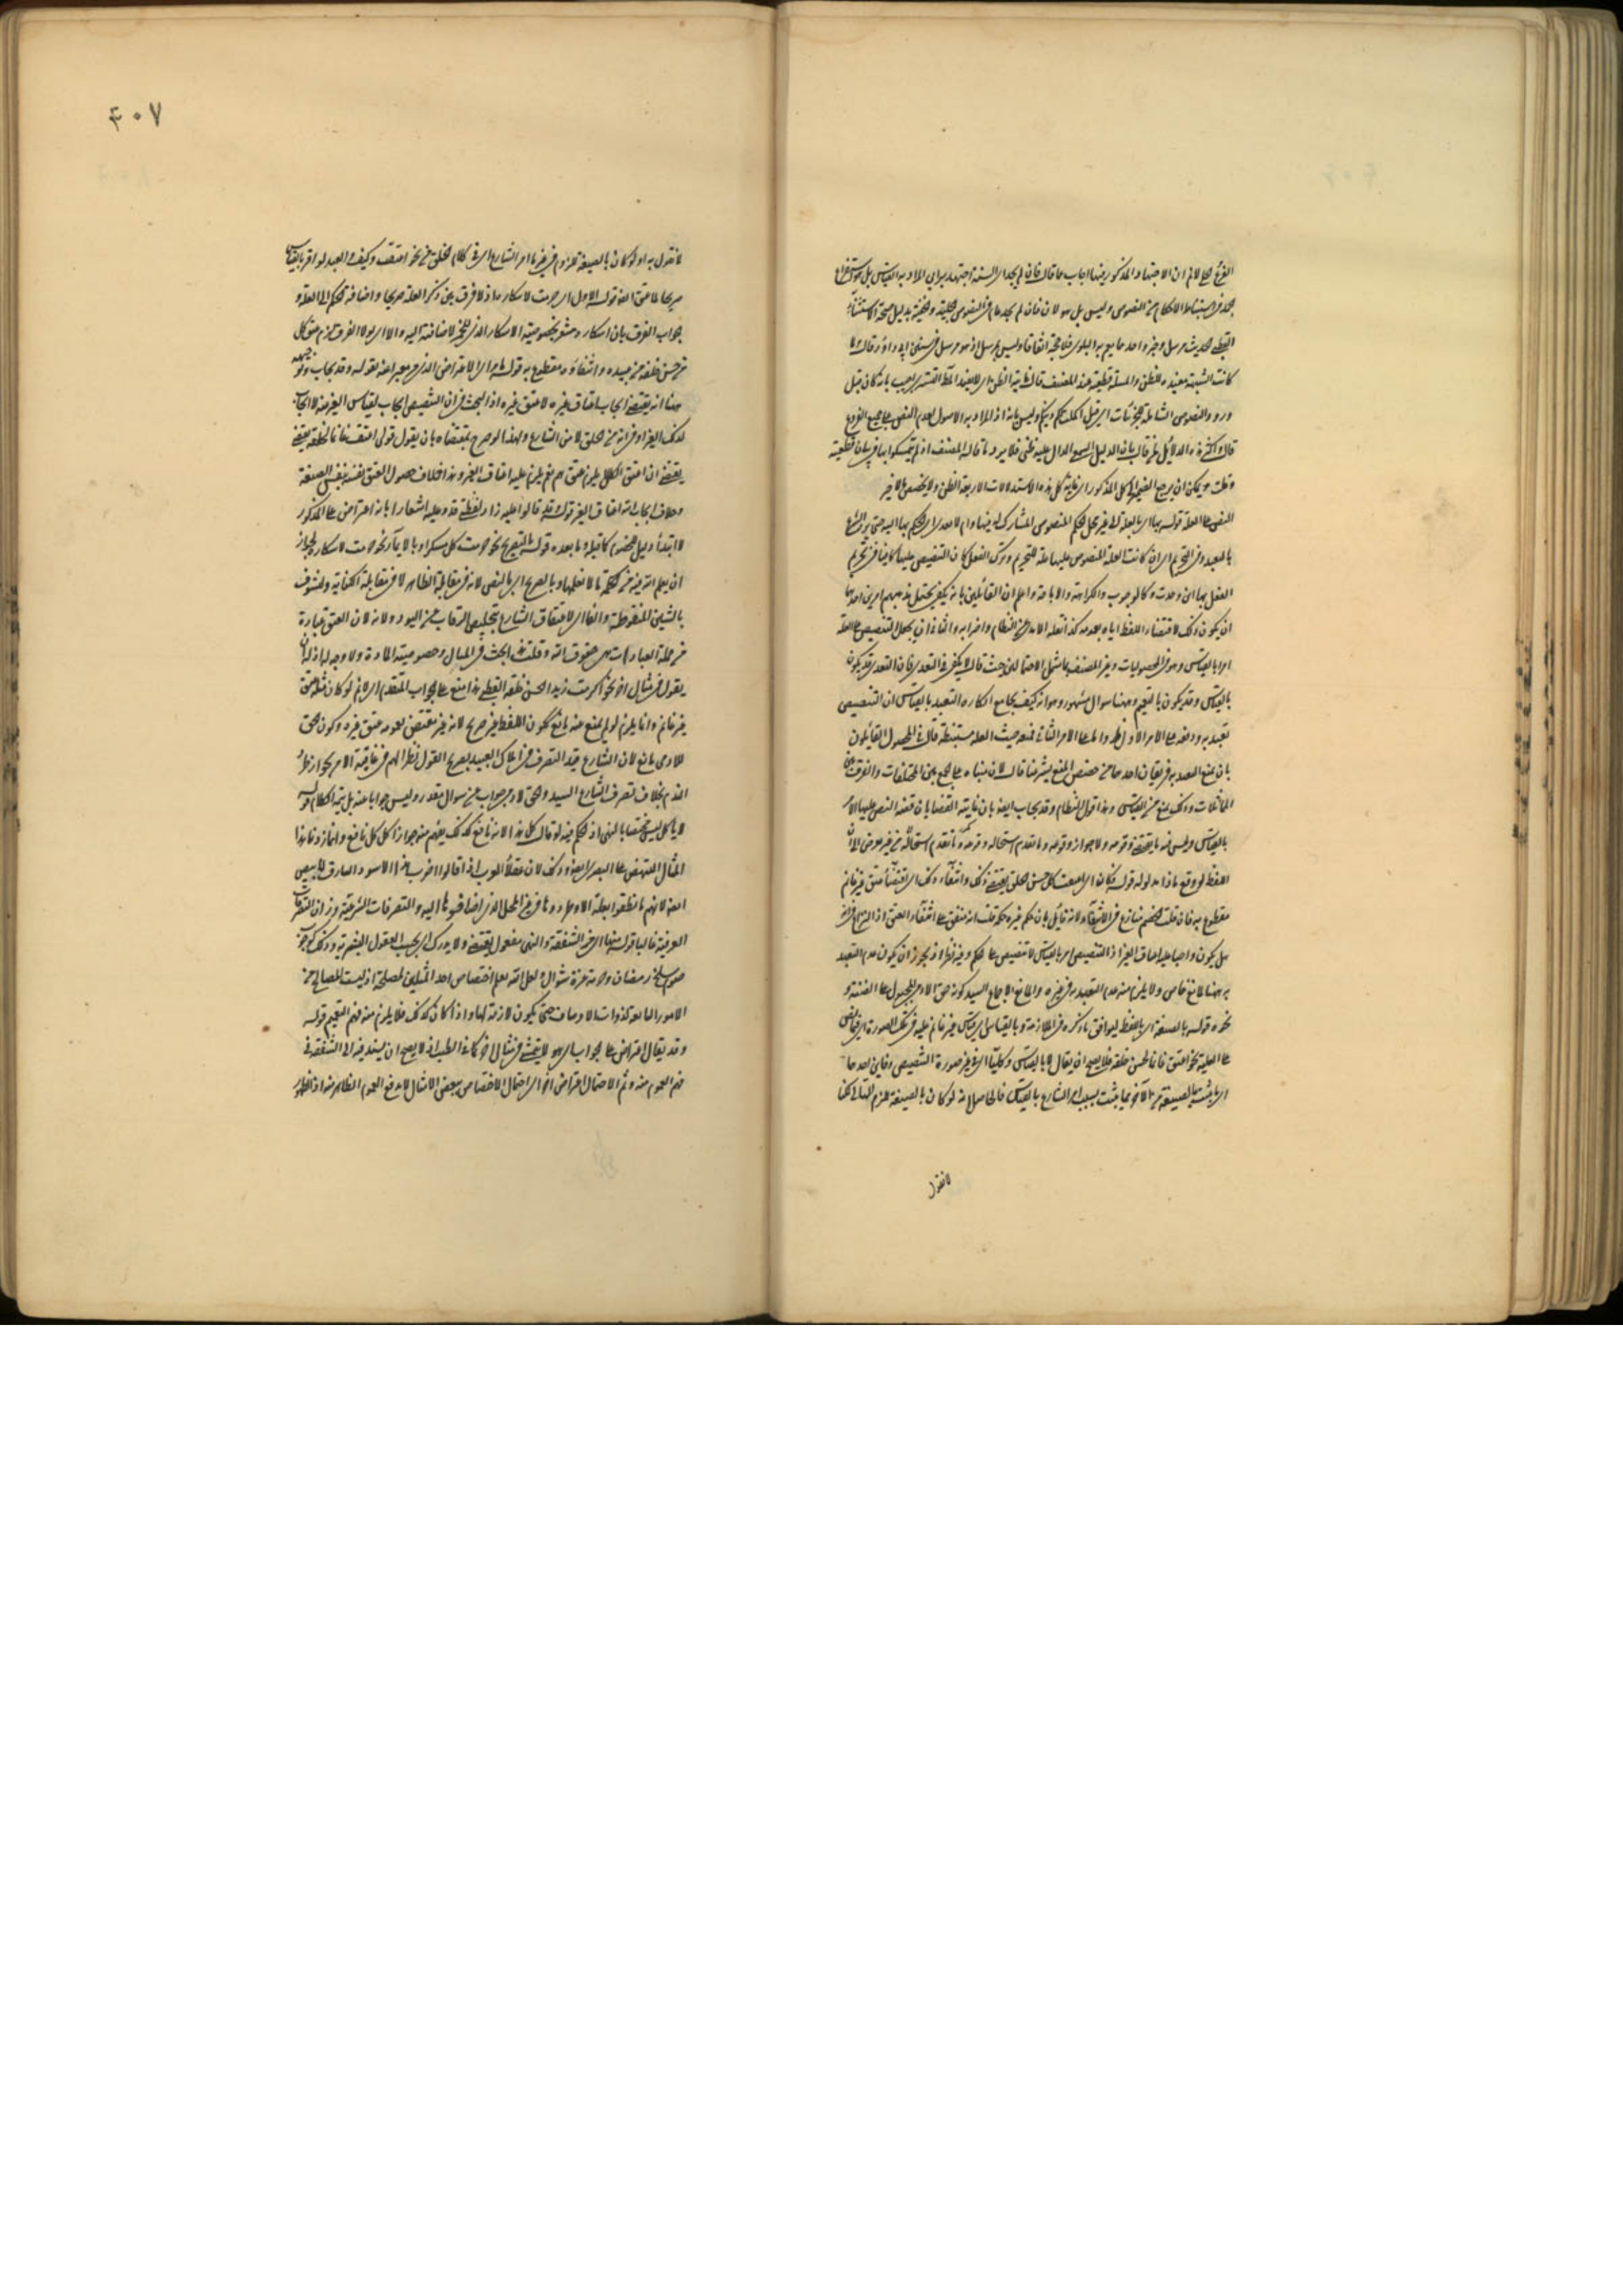 الفرع على لانم ان الاجتهاد المذكور فيها اجاب عما قال فان لم يجد اى السنة اجتهد برايى المراد به القياس بل هو استفراغ
الجهد فى استنباط الاحكام من النصوص وليس بل هو لان فان لم يجد عام فى النصوص الجلية والخفية بدليل صحة الاستثناء
القطبى الحديث مرسل وخبر واحد مما يعم به البلوى فلا حجة اتفاقا وليس بمرسل اذ هو مرسل فى سنن ابى داود قال لما
كانت الشبهة مفيدة للظن والمسألة قطعية عند المصنف قال غايته الظن اى لا يفيد الا الظن
ورود النصوص الشاملة للجزئيات اى قبل اكملت لكم دينكم وليس بانه اذ المراد به الاصول لعدم النص على جميع الفروع
قال اكثر هذه الدلائل لم قال بان الدليل السمعى الدال عليه ظنى فلا يرد ما قاله المصنف اذ لم يتمسكوا بها فى بيان قطعيته
وقلت ويمكن ان يرجع الضمير الى كل المذكور اى غاية كل هذه الاستدلالات الاربعة الظن ولا يختص بالاخير
النص على العلة قوله بها اى بالعلة الى غير محل الحكم المنصوص المشارك له فيها وام لا تعدى الحكم بها اليه حتى يرد الشرع
بالتعبد وفى التحريم اى ان كانت العلة المنصوص عليها علة للتحريم وترك الفعل كان التنصيص عليها كافيا فى تحريم
الفعل بها اين وجدت وكالوجوب والكراهة والاباحة واعلم ان القائلين بانه يكفى يحتمل مذهبهم امرين احدهما
ان يكون ذلك لاقتضاء اللفظ اياه بعمومه كذا نقله الآمدى عن النظام واضرابه والثانى ان يجعل التنصيص على العلة
امرا بالقياس وهو فى المحصول وعبر المصنف بما يشمل الاحتمالين حيث قال لا يكفى فى التعدى فان التعدى قد يكون
بالقياس وقد يكون بالتعميم وههنا سوال مشهور وهو انه كيف يجامع انكاره التعبد بالقياس ان التنصيص
تعبد به ودفعه على الامر الاول ظ واما على الامر الثانى فمنعه حيث العلة مستنبطة قال فى المحصول القائلون
بان يمنع التعبد به فريقان احدهما من خصص المنع بشرعنا قال لان مبناه على الجمع بين المختلفات والفرق بين
المتماثلات وذلك يمنع من القياس وهذا قول النظام وقد يجاب ايضا بان غايته القضا بان قضية النص عليها الامر
بالقياس وليس فيه ما يقتضى وقوعه ولا جواز وقوعه وما تقدم استحالة وقوعه
اللفظ لو وقع ماذا مدلوله قوله فكان اى اعتقت كل حسن الخلق يقتضى ذلك وانتفاء ذلك اى اقتضاء عتق غير غانم
مقطوع به فان قلت الخصم منازع فى الانتفاء لانه قائل بان حكم غيره حكمه قلت انه متفق على انتفاء العتق اذ النزاع فى انه
هل يكون واجبا عليه اعتاق الغير اذ التنصيص امر بالقياس لا تنصيص على الحكم وفيه نظر اذ يجوز ان يكون عدم التعبد
به ههنا لمانع خاص ولا يلزم منه عدم التعبد به فى غيره والمانع الاجماع
نحوه قوله بالصيغة اى باللفظ ليوافق ما ذكره فى الملازمة وبالقياس اى قياس غير غانم عليه فى تلك الصورة
على العلية نحو اعتق غانما لحسن خلقه فلا يصح ان يقال لا بالقياس وكليا اى فى غير صورة التنصيص وفاين احدهما
اى ما يثبت بالصيغة من الآخر مما يثبت بسبب امر الشارع بالقياس فالحاصل انه لو كان بالصيغة لزم التالى لكنا
لا نقول
٤٠٧
لا نقول به او لو كان بالصيغة للزم فى غير ما امر الشارع اى فى كلام الخلق من نحو اعتقت وكيف والعبد لو اقر بالقياس
صريحا لما عتق ايضا قوله الاول اى حرمت لاسكاره اذ لا فرق بين ذكر العلة صريحا واضافة الحكم الى العلة و
جواب الفرق بان اسكاره مشعر بخصوصية الاسكار الذى للخمر لاضافته اليه والا اى لولا الفرق لزم عتق كل
من حسن خلقه من عبيده وانتفاؤه مقطوع به قوله هذا اى الاعتراض الذى عبر عنه بقوله وقد يجاب
هنا انه يقتضى ايجاب اعتاق غيره لا عتق غيره اذ البحث فى ان التنصيص ايجاب لقياس الغير عليه لا ايجاب
لذلك الغير او فى انه من الخلق لا من الشارع ولهذا لو صرح بمقتضاه بان يقول قولى اعتقت غانما لحسن خلقه يقتضى
يقتضى ان اعتق الكل يلزم عتقهم نعم يلزم عليه اعتاق الغير وهذا خلاف حصول العتق نفسه بنفس الصيغة
وخلاف ايجاب الله اعتاق الغير قوله قد قالوا عليه زاد لفظة قد وعليه اشعارا بانه اعتراض على المذكور
لا ابتداء دليل للخصم كما قبله وما بعده قوله للتصريح نحو حرمت كل مسكر او بالايماء نحو حرمت لاسكاره لجواز
ان يعلم الله فيه من الحكمة ما لا نعلمها وبالصريح اى بالنص لانه فى مقابلة الظاهر لا فى مقابلة الكناية ولتشوف
بالشين المنقوطة والفا اى لاعتاق الشارع تخليص الرقاب من اليهود ولانه لان العتق عبارة
من جملة العبادات هى حقوق الله وقلت هذا بحث فى المثال وخصوصية المادة ولا وجه له اذ له ان
يقول فى مثال اخر نحو اكرمت زيدا لحسن خلقه القطبى هذا منع على الجواب المتقدم اى لانم لو كان مثله لعتق
غير غانم وانما يلزم لو لم يمنع منه مانع لكون اللفظ غير صريح لانه غير مقتض بعمومه عتق غيره وكون الحق
للآدمى مانع لان الشارع قيد التصرف فى املاك العبيد بصريح القول نظرا لهم فى عاقبة الامر لجواز ظهور
الندم بخلاف تصرف الشارع السيد والحق لآدمى جواب من سوال مقدر وليس جوابا عنه بل تتمة الكلام قوله
لا ياكل ليس مختصا بالنهى اذ الحكم فيه لو قال كل هذا لانه نافع كذلك يفهم منه جواز اكل كل نافع وانما زدنا هذا
المثال لينتهض على البصرى ايضا وذلك لان عقلاء العرب اذا قالوا اضرب هذا الاسود السارق
ايضا لانهم ما نطقوا بعلة الا وطردوها فى غير المحل الذى اضافوها اليه والتصرفات الشرعية وزان التصرفات
العرفية غالبا قوله منها اى من الشفقة والنهى مفعول يقتضى ولا يدرك اى بحسب العقول البشرية وذلك كوجوب
صوم سلخ رمضان وحرمة غرة شوال ولعل الله يعلم اختصاص احد المثلين لمصلحة اذ ليست المصالح من
الامور التابعة لذوات الاوصاف حتى يكون لازمة لها واذا كان كذلك فلا يلزم منه فهم التعميم قوله
وقد يقال اعتراض على الجواب اى هو لا يتمشى فى مثال اخر كما فى الطبيب اذ لا يصح ان يستند فيه الى الشفقة فى
فهم العموم منه وثم الاحتمال اعتراض اخر اى احتمال الاختصاص ببعض الافعال لا يدفع العموم الظاهر منه اذ الظهور